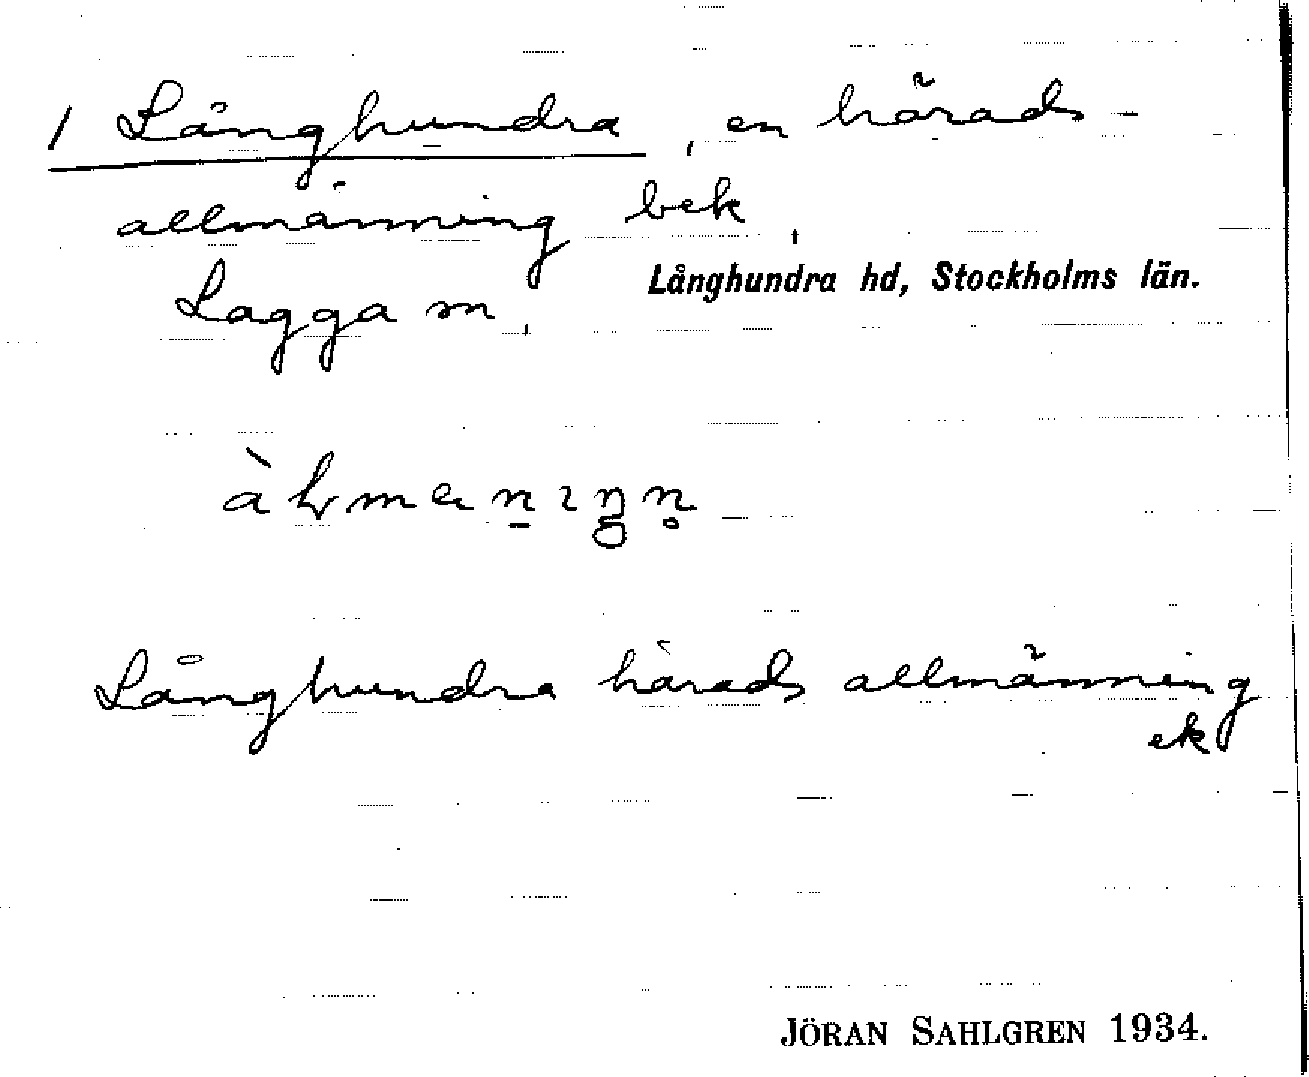 / Långhundra, en härads-
allmänning bek,
Långhundra hd, Stockholms län.
Lagga sn,
Långhundra härads allmänning
ek
JÖRAN SAHLGREN 1934.